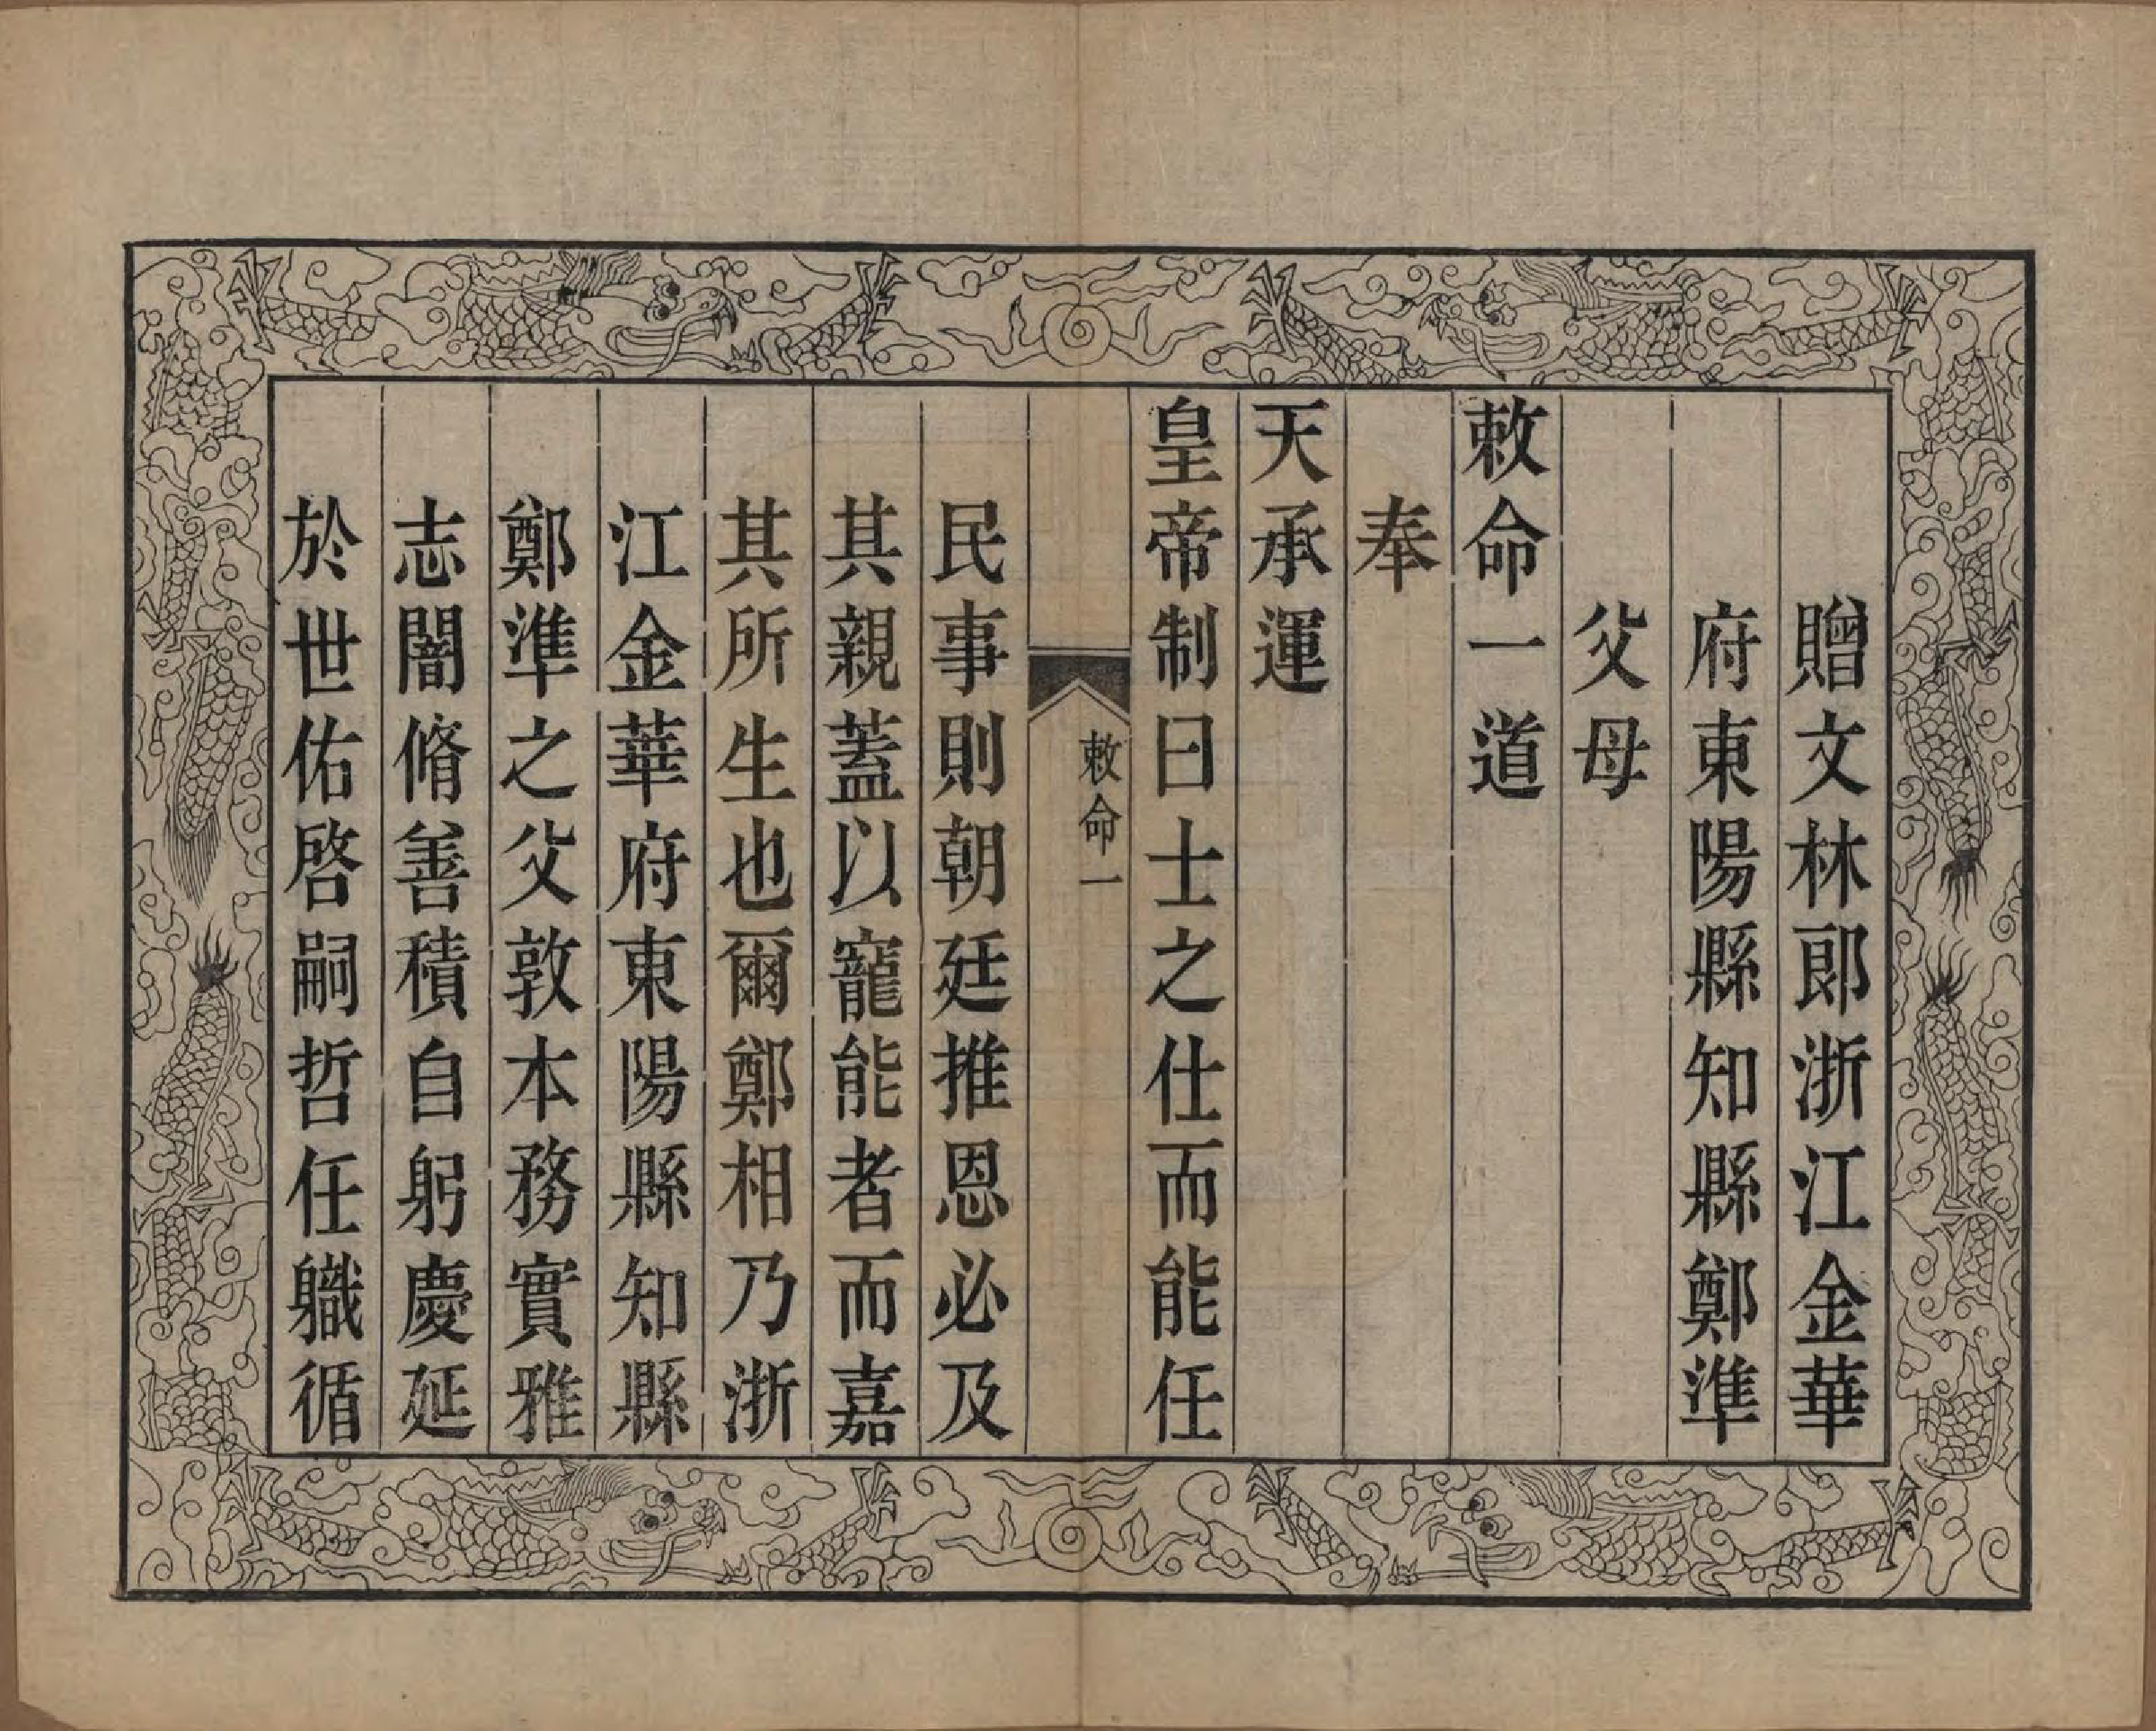 贈文林郎浙江金華
府東陽縣知縣鄭準
父母
敕命一道
奉
天承運
皇帝制曰士之仕而能任
敕命一
民事則朝廷推恩必及
其親蓋以寵能者而嘉
其所生也爾鄭相乃浙
江金華府東陽縣知縣
鄭準之父敦本務實雅
志闇脩善積自躬慶延
於世佑啓嗣哲任職循